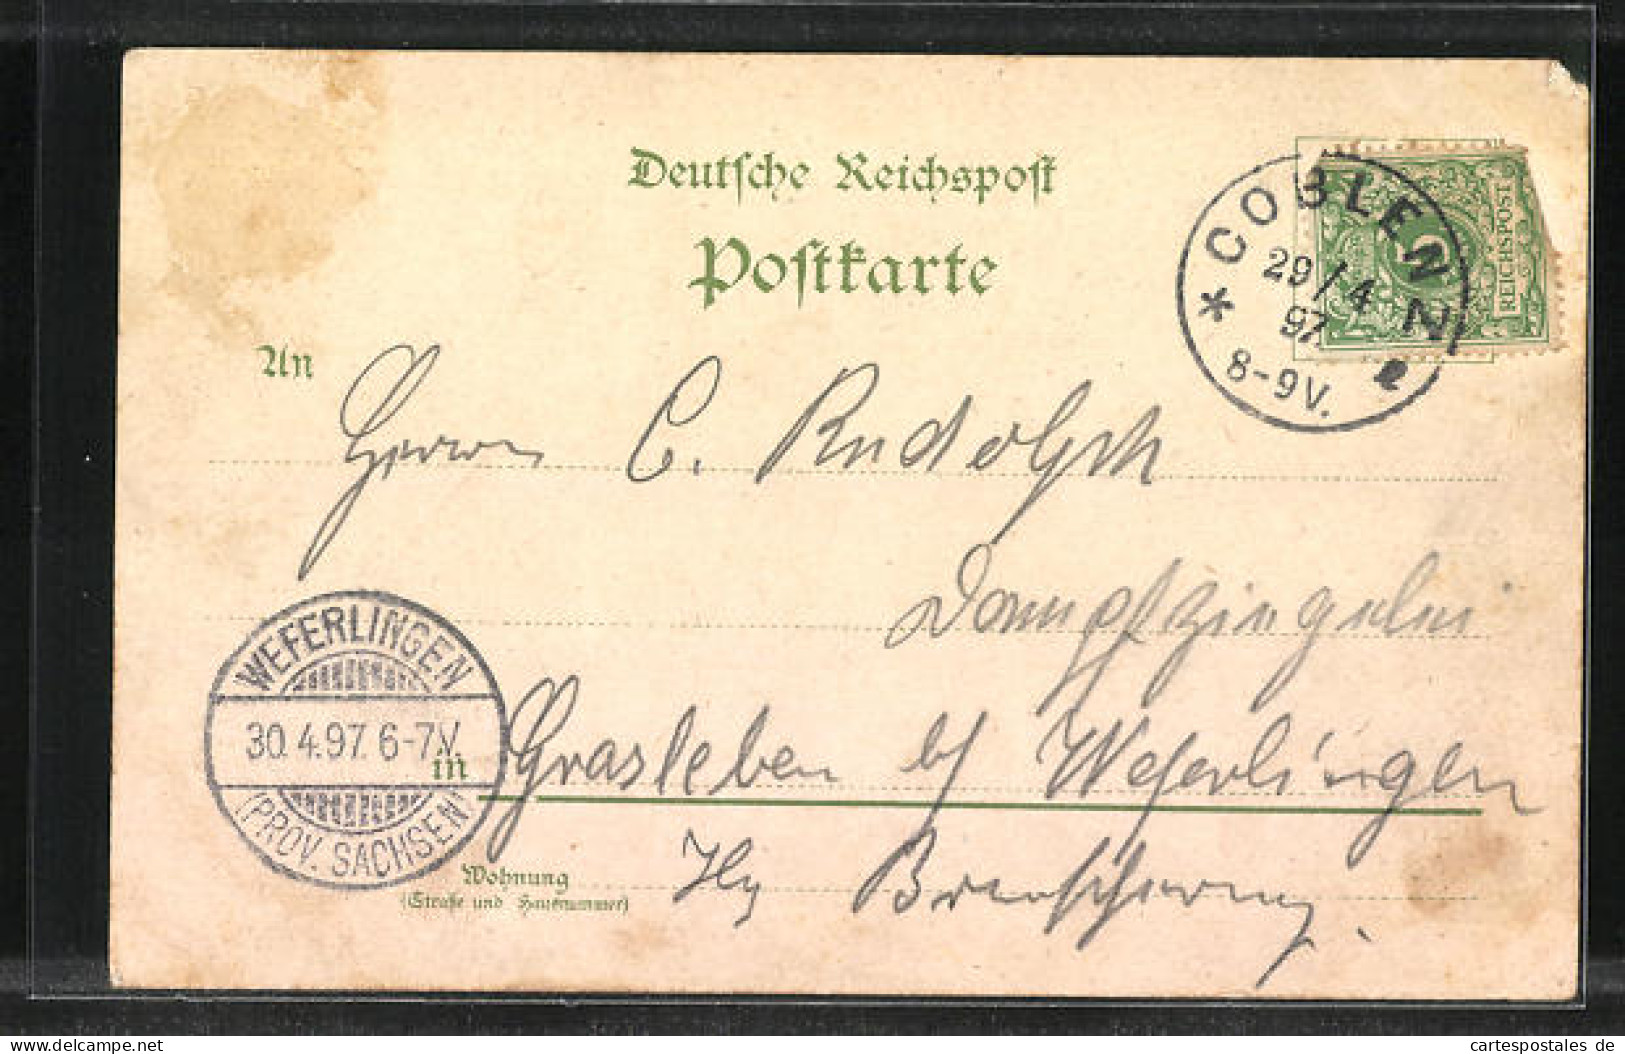 Deutsche Reichspost
Postkarte
COBLENZ
29/4
97.
8-9V.
REICHSPOST
5
An
Herrn C. Rudolph
Dampfziegelei
WEFERLINGEN
30.4.97. 6-7V.
(PROV. SACHSEN)
in Grasleben b/ Weferlingen
Wohnung
(Straße und Hausnummer)
Braunschweig.
cartespostales.de
cartespostales de